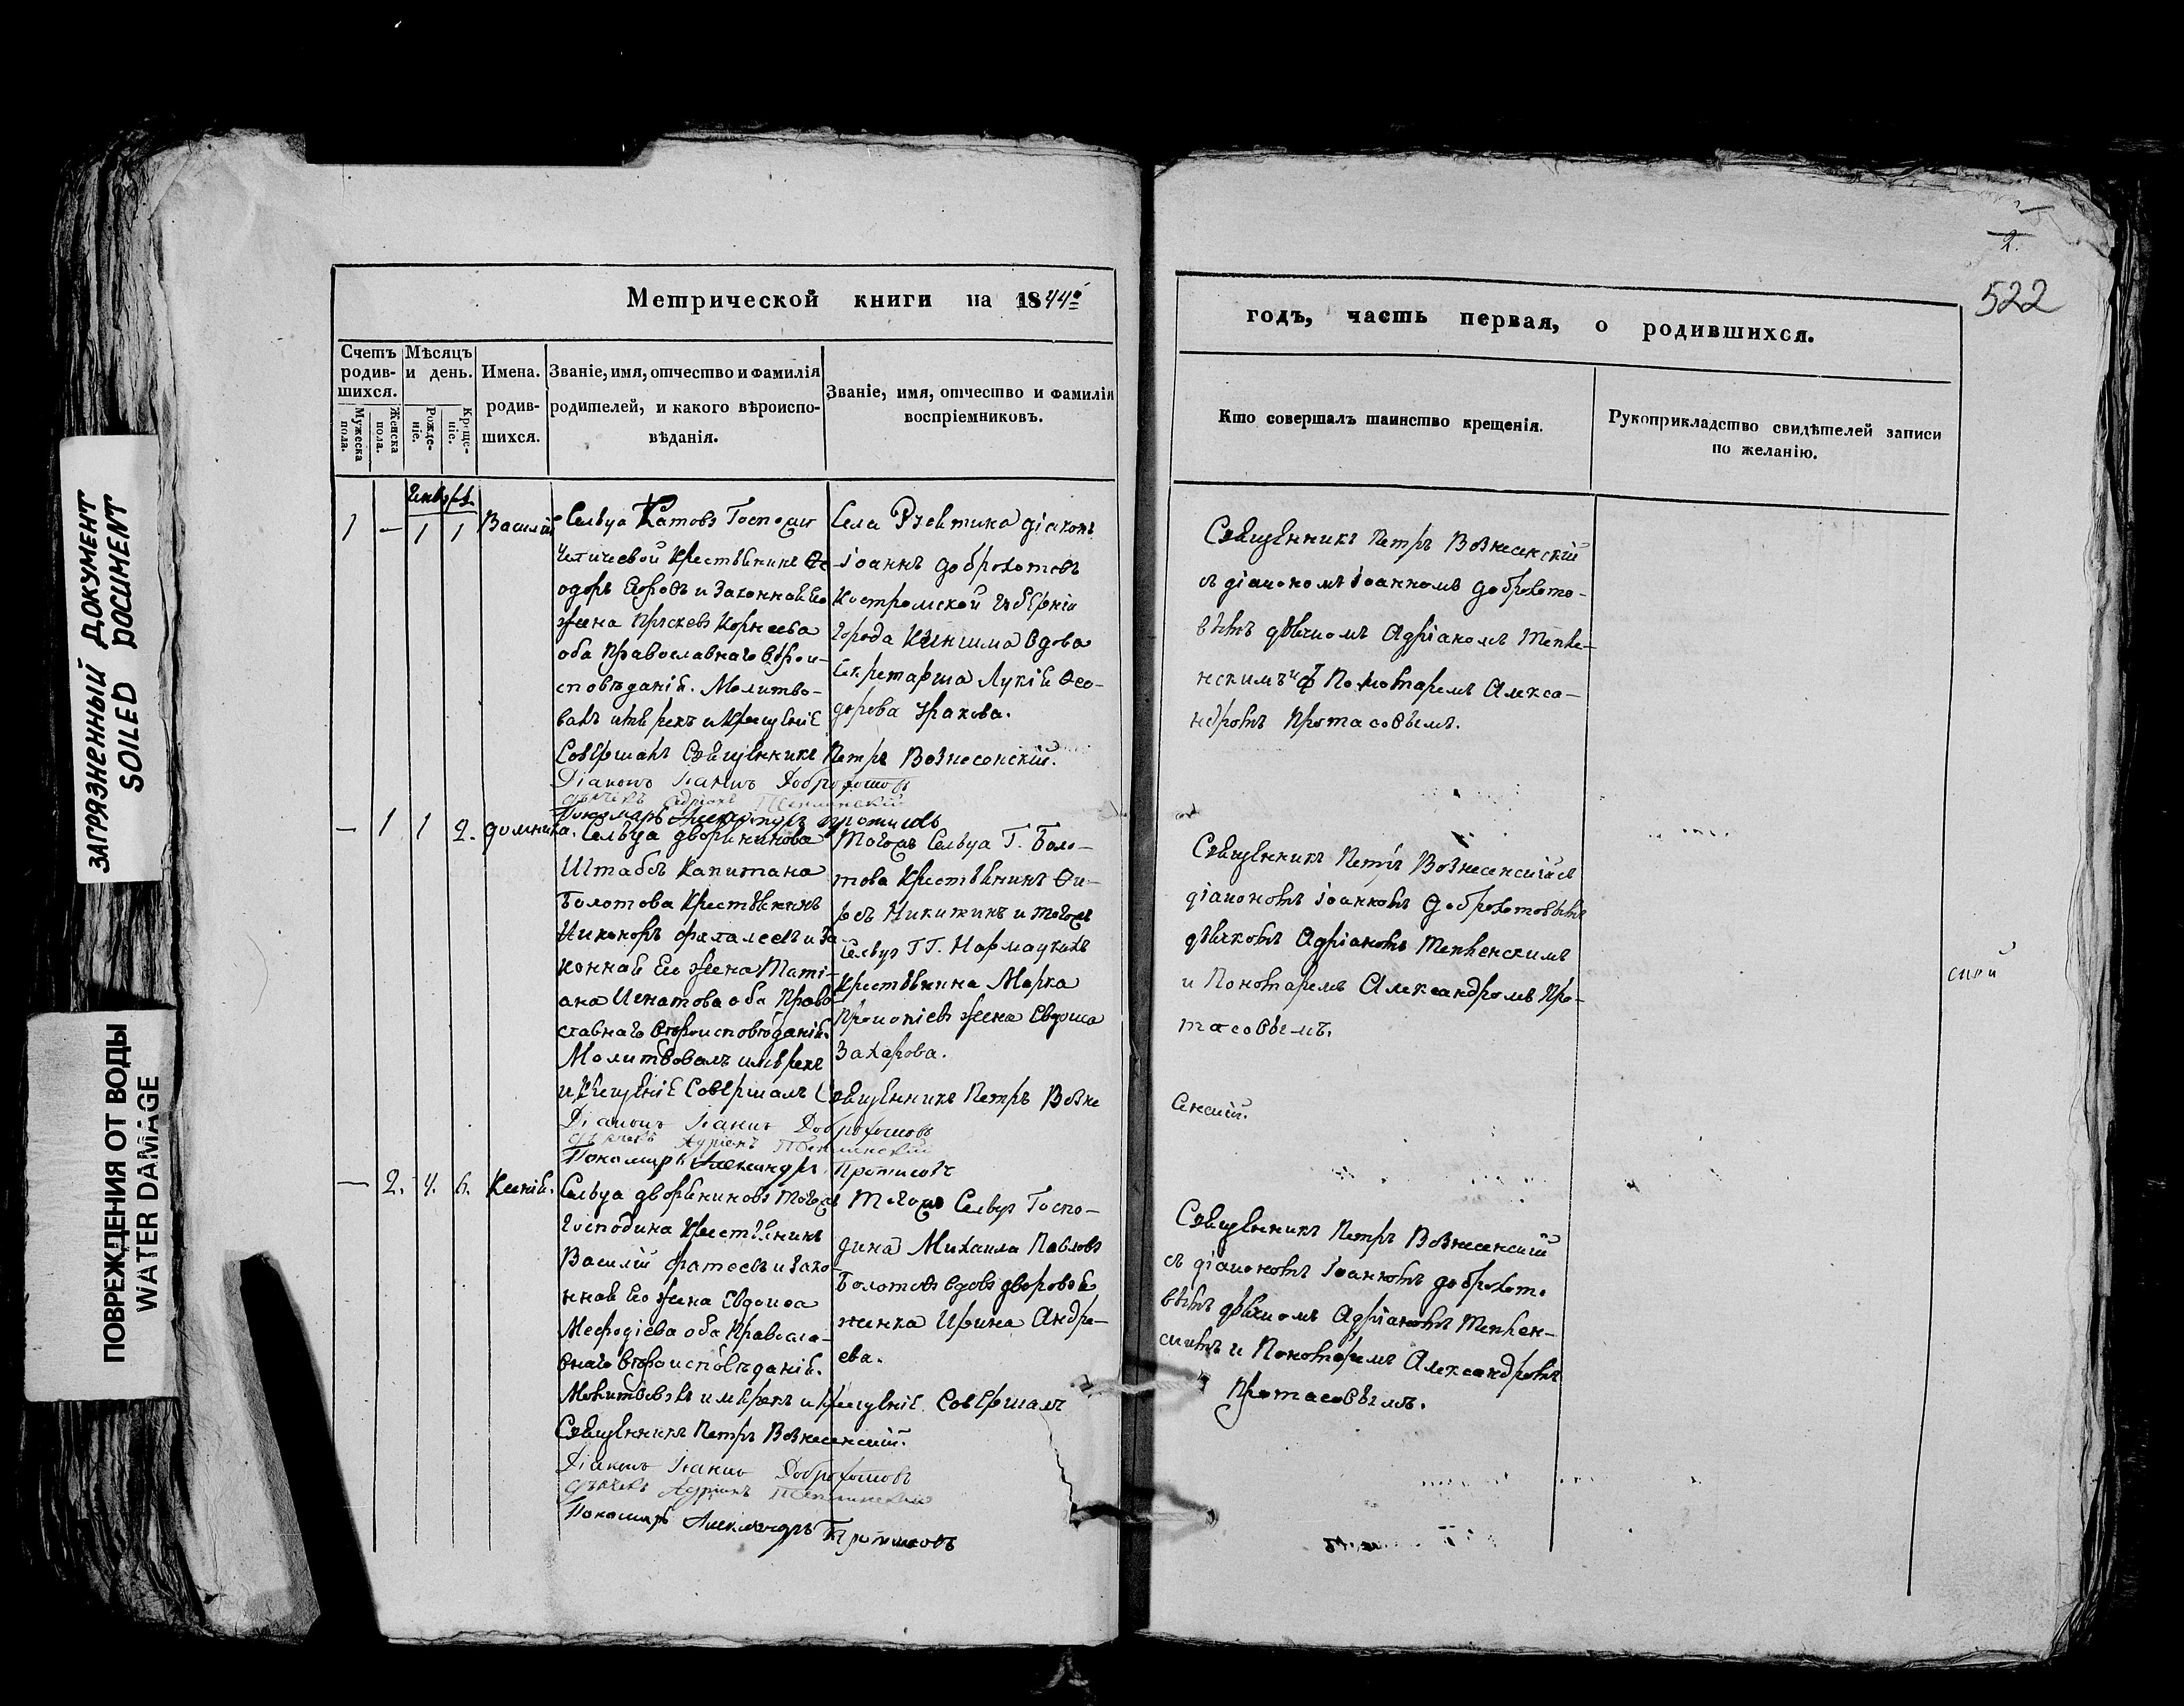 ЗАГРЯЗНЕННЫЙ ДОКУМЕНТ
SOILED DOCUMENT
ПОВРЕЖДЕНИЯ ОТ ВОДЫ
WATER DAMAGE
2.
522
Метрической книги на 1844й
годъ, часть первая, о родившихся.
Счетъ родив-
шихся.
Мужеска пола.
Женска пола.
Мѣсяцъ
и день.
Рожде-
ніе.
Креще-
ніе.
Имена.
родив-
шихся.
Званіе, имя, отчество и фамилія
родителей, и какого вѣроиспо-
вѣданія.
Званіе, имя, отчество и фамилія
воспріемниковъ.
Кто совершалъ таинство крещенія.
Рукоприкладство свидѣтелей записи
по желанію.
1 — 1 1 Василій
Сельца Катова Госпожи
Крестьянинъ Ѳе-
одоръ Егоровъ и Законная Его
жена Прасковья Корнеева
оба Православнаго вѣрои-
сповѣданія. Молитво-
валъ имя рекъ и Крещеніе
Совершалъ Священникъ Петръ Вознесенскій.
Діаконъ Іаннъ Доброхотовъ
дьячекъ Адріанъ
Пономарь Александръ Протасовъ
Села діаконъ
Іоаннъ Доброхотовъ
Костромской губерніи
города Кинешма вдова
Секретарша Ѳео-
дорова
Священникъ Петръ Вознесенскій
съ діакономъ Іоанномъ Доброхото-
вымъ дьячкомъ Адріаномъ
и Пономаремъ Алекса-
ндромъ Протасовымъ.
— 1 1 2. Домника.
Сельца Дворянинова
Штабсъ Капитана
Болотова Крестьянинъ
Никаноръ и За-
конная Его жена Тати-
ана Игнатова оба Право-
славнаго вѣроисповѣданія.
Молитвовалъ имя рекъ
и Крещеніе Совершалъ Священникъ Петръ Возне
сенскій.
Діаконъ Іаннъ Доброхотовъ
дьячекъ Адріанъ
Пономарь Александръ Протасовъ
Тогожъ Сельца Г. Боло-
това Крестьянинъ
Никитинъ и тогожъ
Сельца ГГ. Нармацкихъ
Крестьянина Марка
Прокопіева жена Евдокія
Захарова.
Священникъ Петръ Вознесенскій съ
діакономъ Іоанномъ Доброхотовымъ
дьячкомъ Адріаномъ
и Пономаремъ Александромъ Про-
тасовымъ.
— 2. 4. 6. Ксенія.
Сельца Дворянинова тогожъ
Господина Крестьянинъ
Василій Фатеевъ и Зако-
нная Его жена Евдокія
Мефодіева оба Правосла-
внаго вѣроисповѣданія.
Молитвовалъ имя рекъ и Крещеніе Совершалъ
Священникъ Петръ Вознесенскій.
Діаконъ Іаннъ Доброхотовъ
дьячекъ Адріанъ
Пономарь Александръ Протасовъ
Тогожъ Сельца Госпо-
дина Михаила Павлова
Болотова вдова дворовая
женка Ирина Андре-
ева.
Священникъ Петръ Вознесенскій
съ діакономъ Іоанномъ Доброхото
вымъ дьячкомъ Адріаномъ
и Пономаремъ Александромъ
Протасовымъ.